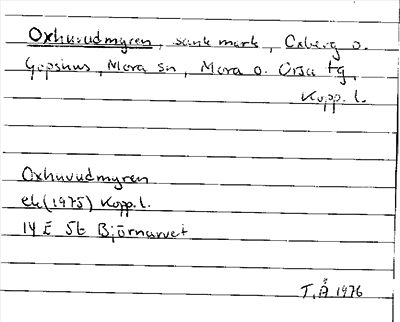 Oxhuvudmyren, sank mark, Oxberg o.
Gopshus, Mora sn, Mora o. Orsa tg,
Kopp. l.
Oxhuvudmyren
ek (1975) Kopp. l.
14 E 5E Björnarvet
T.Å 1976